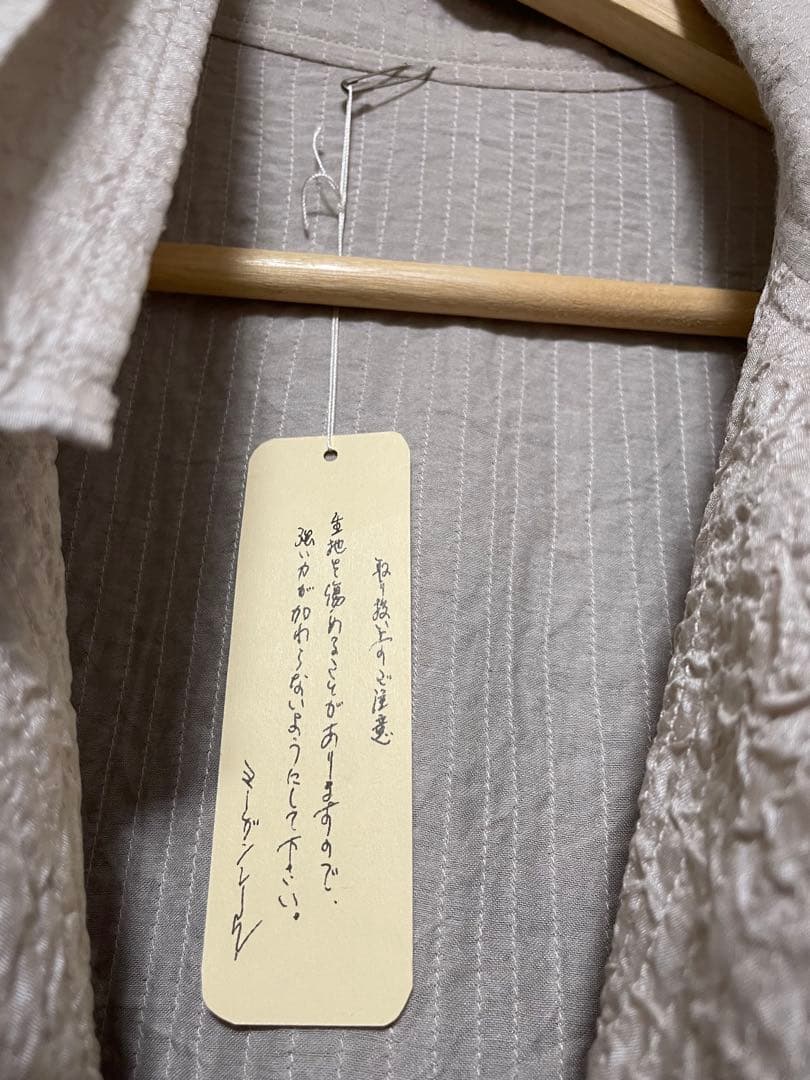 取り扱い上のご注意
生地を傷めることがありますので、
強い力が加わらないようにして下さい。
マーガンレーウ